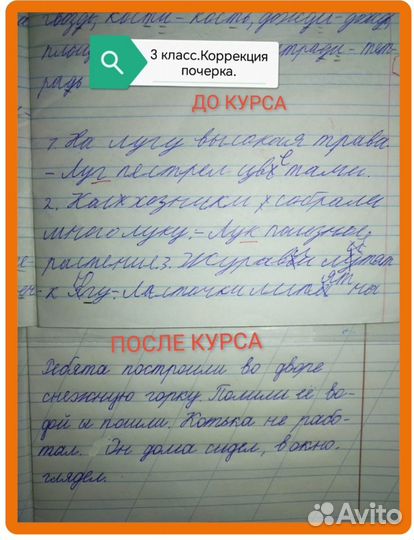 гвоздь, кости - кость,
3 класс.Коррекция
почерка.
тради - тет-
радь
ДО КУРСА
1. На лугу высокая трава
- Луг пестрел цветами.
2. Колхозники собрали
много луку. - Лук полезное
растение. 3. Журавли летят
к югу. - Ласточки летят на
ПОСЛЕ КУРСА
Ребята построили во дворе
снежную горку. Полили её во-
дой и пошли. Котька не рабо-
тал. Он дома сидел, в окно
глядел.
Avito